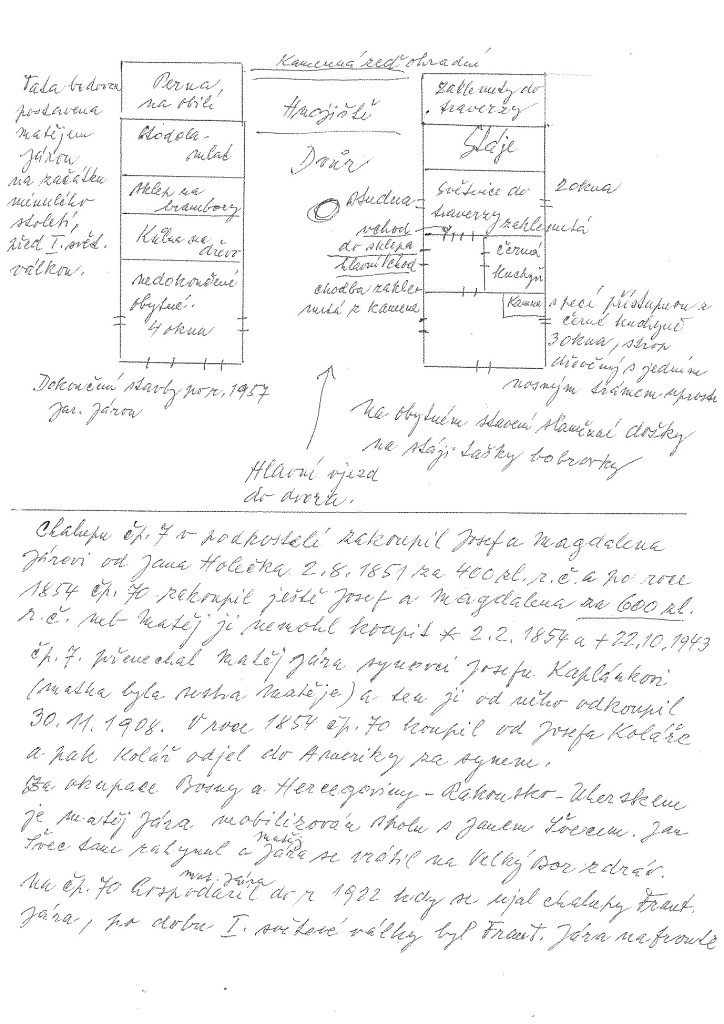 Kamenná zeď ohradní
Tata budova
postavena
matějem
Járou
na začátku
minulého
století,
před I. svět.
válkou.
Perna
na obilí
Stodola-
mlat
sklep na
brambory
Kůlna na
dřevo
nedokončené
obytné.
4 okna
Dokončení stavby po r. 1957
Jar. Járou
Hnojiště
Dvůr
studna
vchod
do sklepa
hlavní vchod
chodba zakle-
nutá z kamene
Hlavní vjezd
do dvora.
zaklenuty do
traverzy
Stáje
Světnice do
traverzy zaklenutá
2 okna
černá
kuchyň
Kamna
s pecí přístupnou z
černé kuchyně
3 okna, strop
dřevěný s jedním
nosným trámem uprostř
Na obytném stavení slaměné došky
na stáji tašky bobrovky
Chalupu čp. 7 v podkostelí zakoupil Josef a Magdalena
Járovi od Jana Holečka 2.8.1851 za 400 zl. r.č. a po roce
1854 čp. 70 zakoupil ještě Josef a Magdalena za 600 zl.
r.č. neb Matěj ji nemohl koupit * 2.2.1854 a + 22.10.1943
čp. 7. přenechal Matěj Jára synovci Josefu Kaplánkovi
(matka byla sestra Matěje) a ten ji od něho odkoupil
30.11.1908. V roce 1854 čp. 70 koupil od Josefa Koláře
a pak Kolář odjel do Ameriky za synem.
Za okupace Bosny a Hercegoviny - Rakousko-Uherskem
je matěj Jára mobilizován spolu s Janem Švecem. Jan
Švec tam zahynul a matěj Jára se vrátil na Velký Bor zdráv.
Na čp. 70 mat. Jára hospodařil do r 1922 kdy se ujal chalupy Frant.
Jára, po dobu I. světové války byl Frant. Jára na frontě